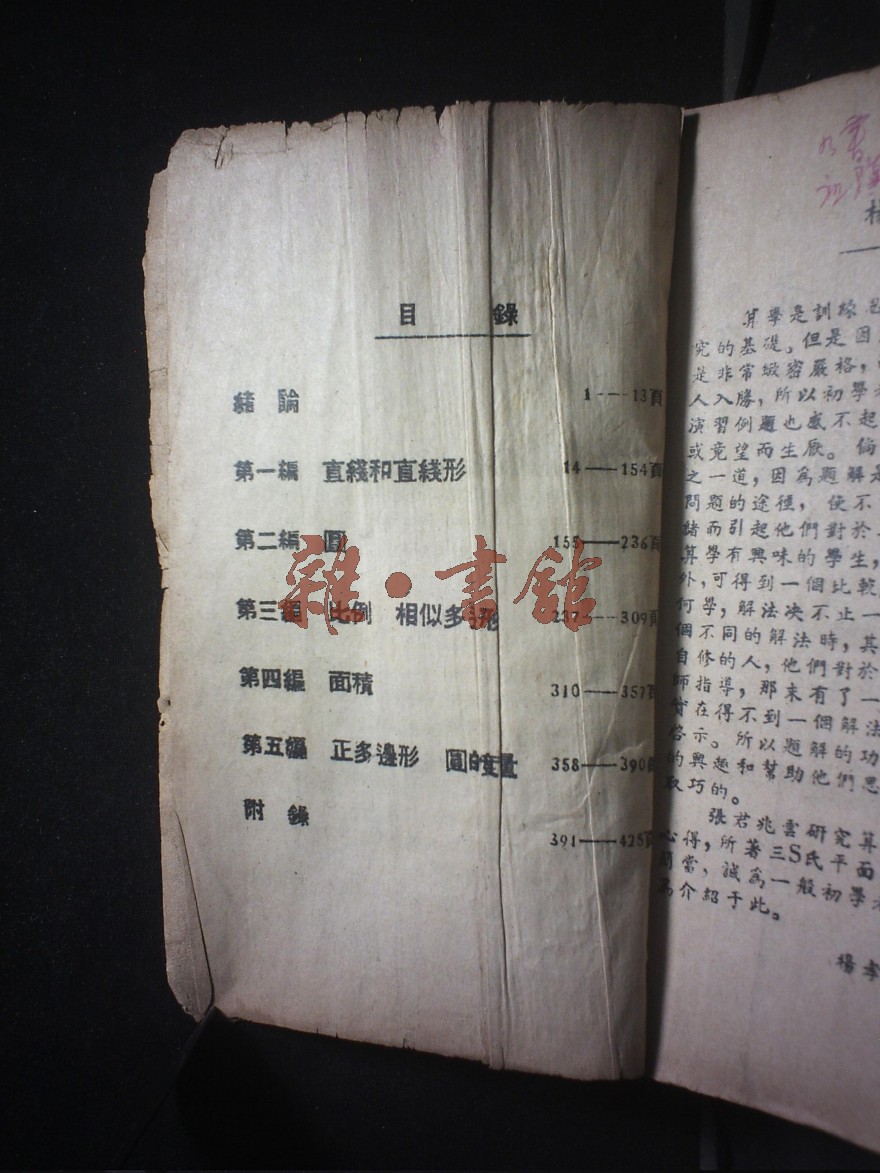 目 錄
緒 論 1——13頁
第一編 直綫和直綫形 14——154頁
第二編 圓 155——236頁
第三編 比例 相似多邊形 237——309頁
第四編 面積 310——357頁
第五編 正多邊形 圓的度量 358——390頁
附 錄 391——425頁
雜·書館
算學是訓練
究的基礎,但是因
是非常緻密嚴格,
人入勝,所以初學
演習例題也感不起
或竟望而生厭。倘
之一道,因為題解是
問題的途徑,使不
緒而引起他們對於
算學有興味的學生,
外,可得到一個比較
何學,解法决不止一
個不同的解法時,其
自修的人,他們對於
師指導,那末有了一
實在得不到一個解法
啓示。所以題解的功
的興趣和幫助他們思
取巧的。
張君兆雲研究算
心得,所著三S氏平面
當,誠為一般初學
為介紹于此。
楊孝